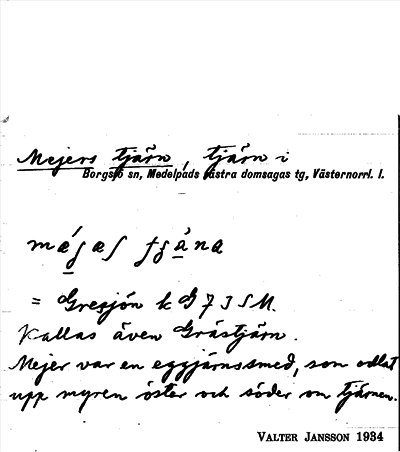 Mejers tjärn, tjärn i
Borgsjö sn, Medelpads västra domsagas tg, Västernorrl. l.
= Gresjön k G 7 J S M.
Kallas även Gråstjärn.
Mejer var en eggjärnssmed, som odlat
upp myren öster och söder om tjärnen.
VALTER JANSSON 1934